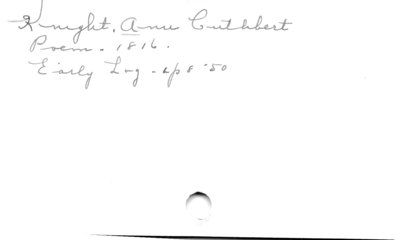 Knight, Ann Cuthbert
Poem - 1816.
Early Log - Ap 8 '50